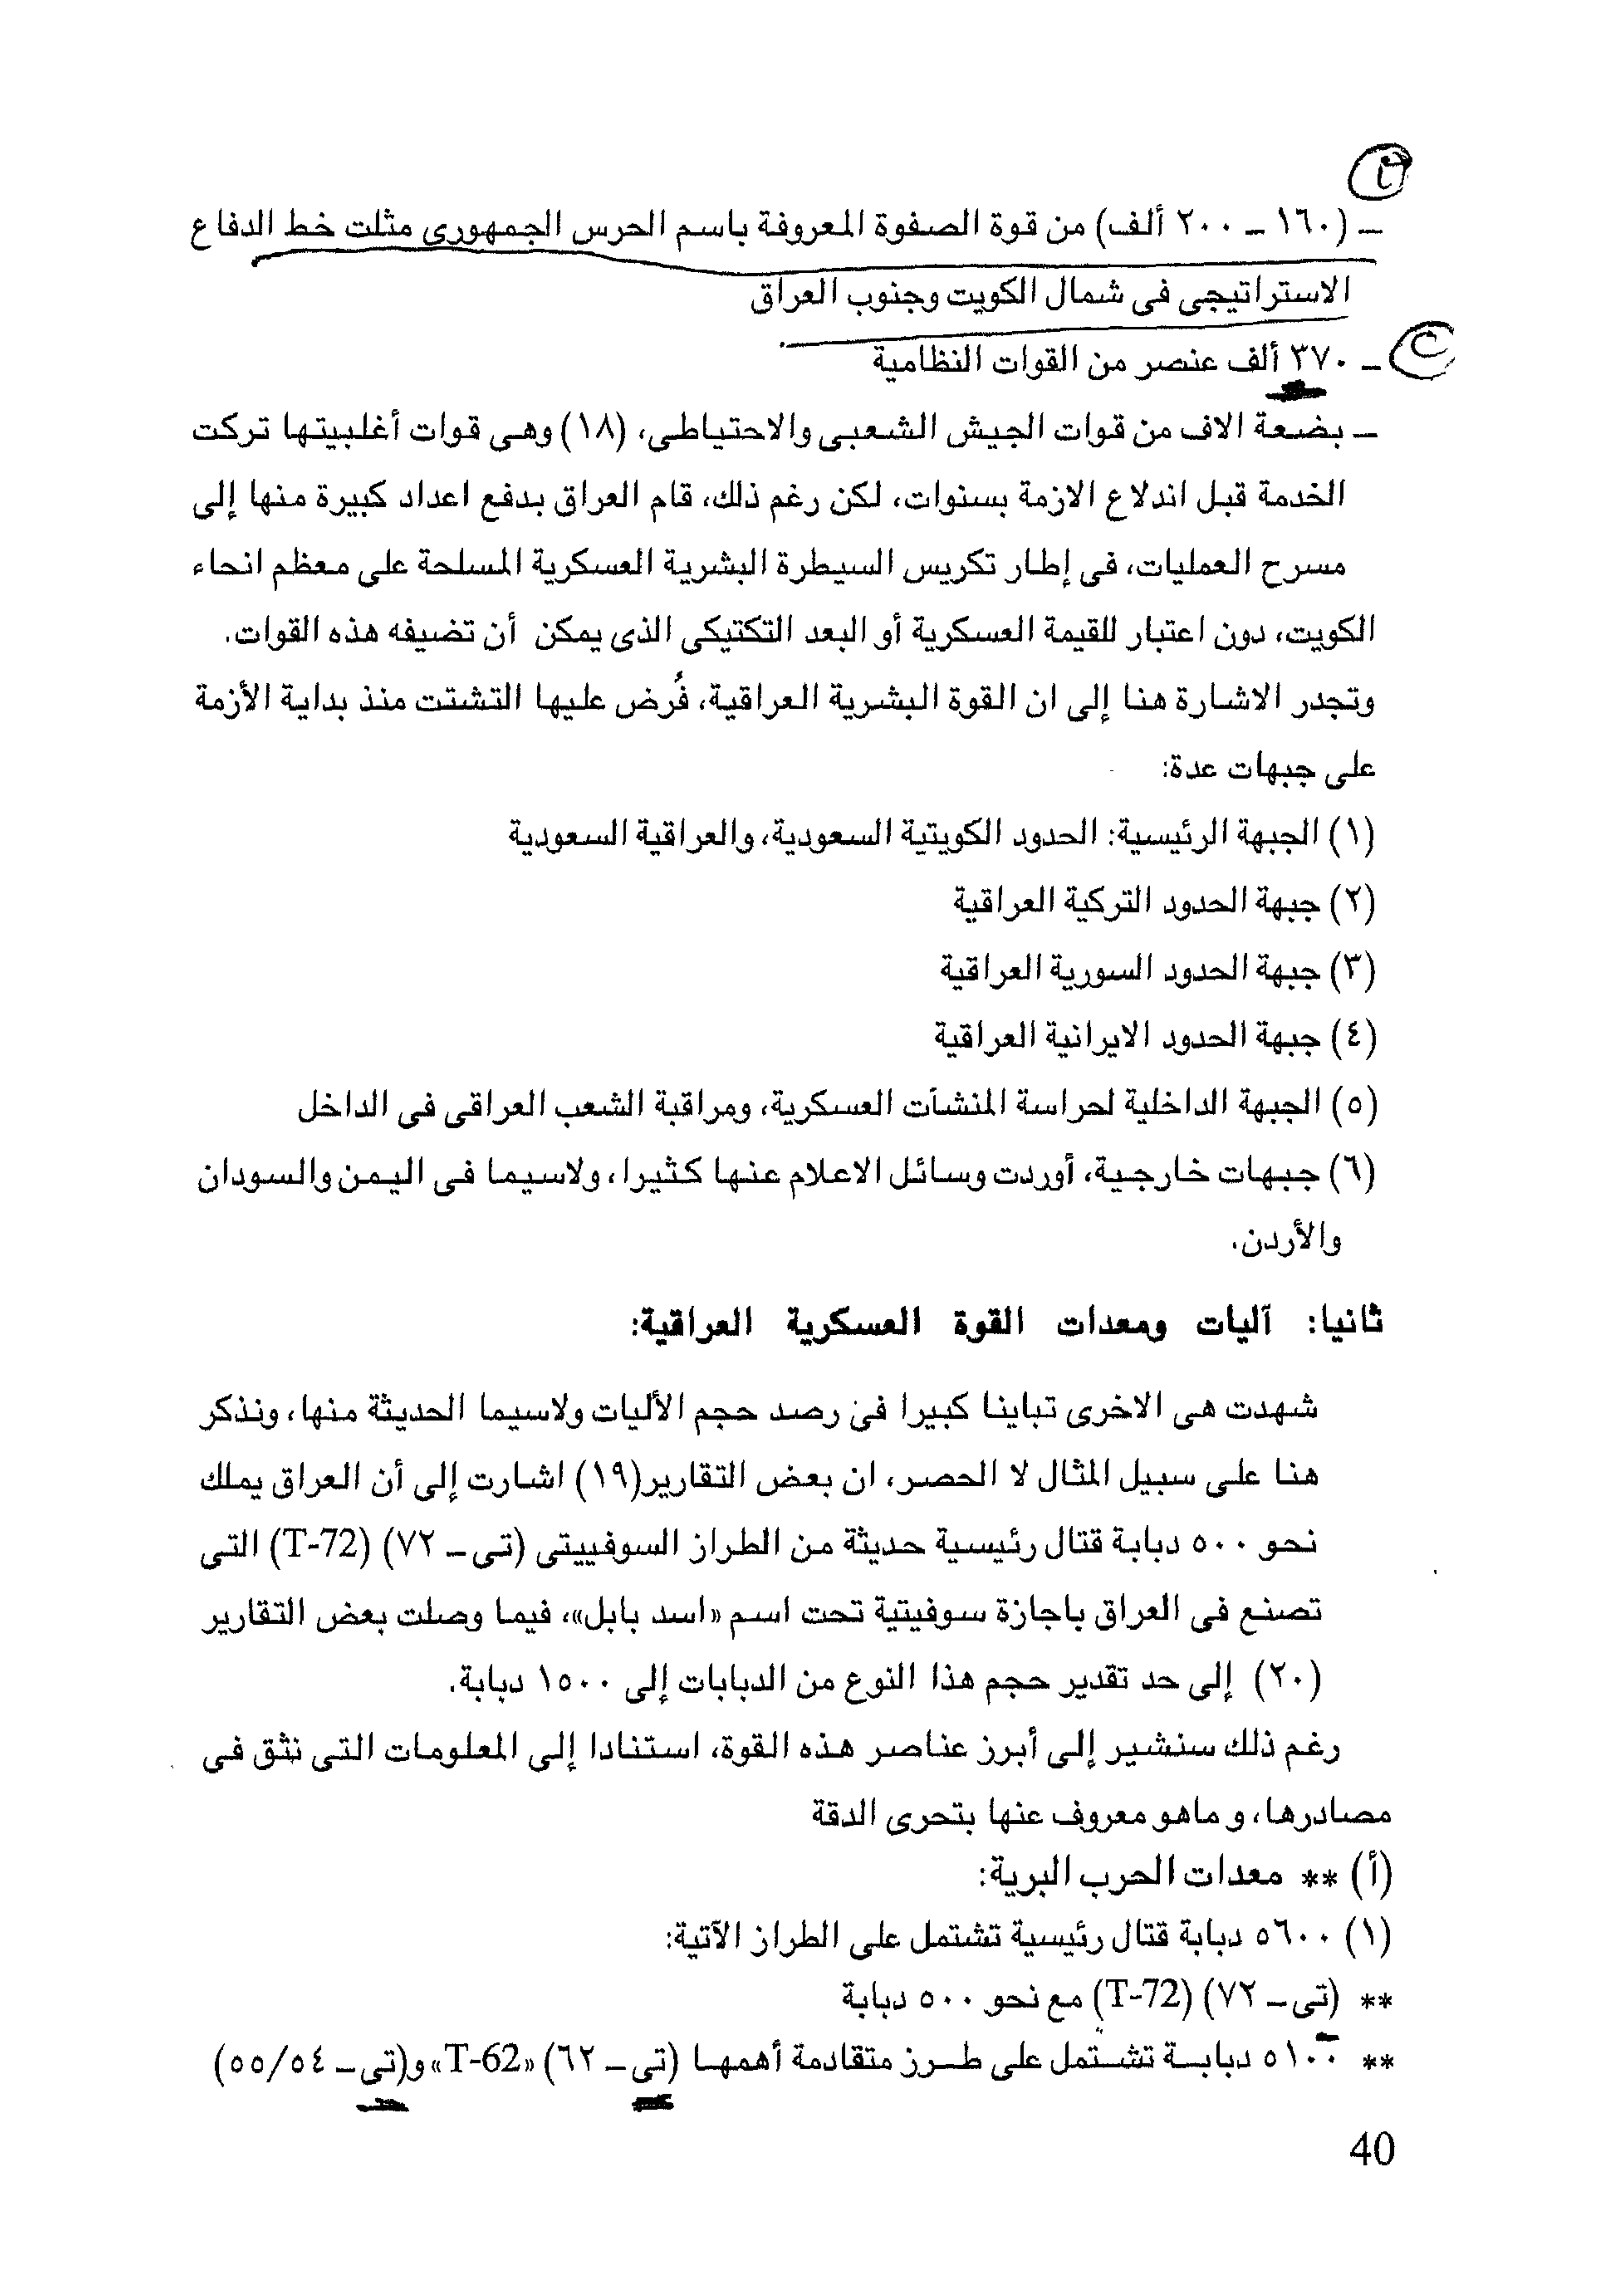 – (١٦٠ – ٢٠٠ ألف) من قوة الصفوة المعروفة باسم الحرس الجمهورى مثلت خط الدفاع
الاستراتيجى فى شمال الكويت وجنوب العراق
– ٣٧٠ ألف عنصر من القوات النظامية
– بضعة الاف من قوات الجيش الشعبى والاحتياطى، (١٨) وهى قوات أغلبيتها تركت
الخدمة قبل اندلاع الازمة بسنوات، لكن رغم ذلك، قام العراق بدفع اعداد كبيرة منها إلى
مسرح العمليات، فى إطار تكريس السيطرة البشرية العسكرية المسلحة على معظم انحاء
الكويت، دون اعتبار للقيمة العسكرية أو البعد التكتيكى الذى يمكن أن تضيفه هذه القوات.
وتجدر الاشارة هنا إلى ان القوة البشرية العراقية، فُرض عليها التشتت منذ بداية الأزمة
على جبهات عدة:
(١) الجبهة الرئيسية: الحدود الكويتية السعودية، والعراقية السعودية
(٢) جبهة الحدود التركية العراقية
(٣) جبهة الحدود السورية العراقية
(٤) جبهة الحدود الايرانية العراقية
(٥) الجبهة الداخلية لحراسة المنشآت العسكرية، ومراقبة الشعب العراقى فى الداخل
(٦) جبهات خارجية، أوردت وسائل الاعلام عنها كثيرا، ولاسيما فى اليمن والسودان
والأردن.
ثانيا: آليات ومعدات القوة العسكرية العراقية:
شهدت هى الاخرى تباينا كبيرا فى رصد حجم الأليات ولاسيما الحديثة منها، ونذكر
هنا على سبيل المثال لا الحصر، ان بعض التقارير(١٩) اشارت إلى أن العراق يملك
نحو ٥٠٠ دبابة قتال رئيسية حديثة من الطراز السوفييتى (تى – ٧٢) (T-72) التى
تصنع فى العراق باجازة سوفيتية تحت اسم «اسد بابل»، فيما وصلت بعض التقارير
(٢٠) إلى حد تقدير حجم هذا النوع من الدبابات إلى ١٥٠٠ دبابة.
رغم ذلك سنشير إلى أبرز عناصر هذه القوة، استنادا إلى المعلومات التى نثق فى
مصادرها، و ماهو معروف عنها بتحرى الدقة
(أ) ** معدات الحرب البرية:
(١) ٥٦٠٠ دبابة قتال رئيسية تشتمل على الطراز الآتية:
** (تى – ٧٢) (T-72) مع نحو ٥٠٠ دبابة
** ٥١٠٠ دبابة تشتمل على طرز متقادمة أهمها (تى – ٦٢) «T-62» و(تى – ٥٥/٥٤)
40